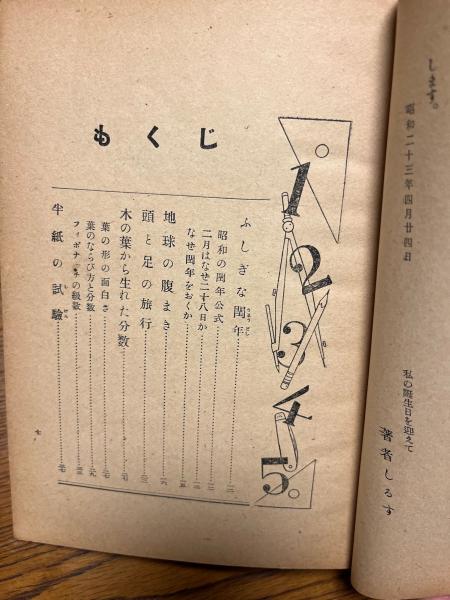 します。
昭和二十三年四月廿四日
私の誕生日を迎えて
著者しるす
もくじ
1
2
3
4
5
ふしぎな閏年
昭和の閏年公式
二月はなぜ二十八日か
なぜ閏年をおくか
地球の腹まき
頭と足の旅行
木の葉から生れた分数
葉の形の面白さ
葉のならび方と分数
フィボナッチの級数
半紙の試驗
七